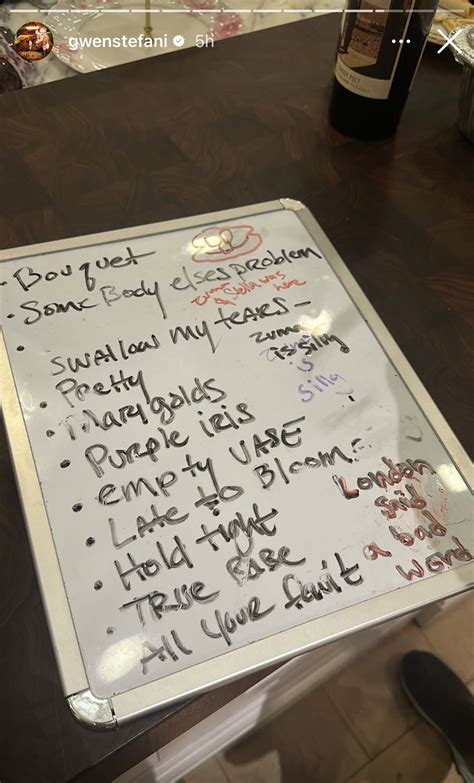 gwenstefani 5h
• Bouquet
• Some Body elses problem
Zuma & Stella was here
• Swallow my tears -
Zuma is silly
is
silly
• Pretty
• Marygolds
• Purple iris
• empty VASE
• LATE to Bloom
• Hold tight
• TRUE BABE
All your fruit
London
said
a bad
word